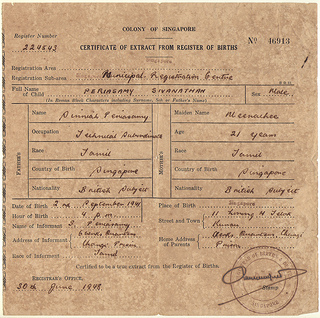 COLONY OF SINGAPORE
Register Number
224543
CERTIFICATE OF EXTRACT FROM REGISTER OF BIRTHS
No 46913
Registration Area
Registration Sub-area Municipal Registration Centre
Full Name of Child PERIASAMY SIVANATHAN Sex Male.
(In Roman Block Characters including Surname, Set or Father's Name)
FATHER'S
Name Sinniah Periasamy
Occupation Technical Subordinate
Race Tamil
Country of Birth Singapore
Nationality British Subject
MOTHER'S
Maiden Name Meenatchee
Age 21 years
Race Tamil
Country of Birth Singapore
Nationality British Subject
Date of Birth 2nd September 1941
Hour of Birth 4 p.m.
Name of Informant S. Periasamy
Address of Informant Clerks Quarters
Changi Prison
Race Tamil
Place of Birth 11
Street and Town
Home Address of Parents Clerks Quarters, Changi
Prison
Certified to be a true extract from the Register of Births.
REGISTRAR'S OFFICE,
30th June, 1948.
Stamp